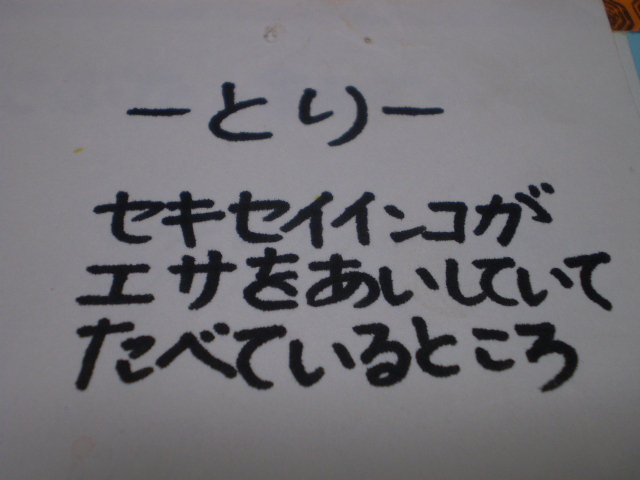 ーとりー
セキセイインコが
エサをあいしていて
たべているところ